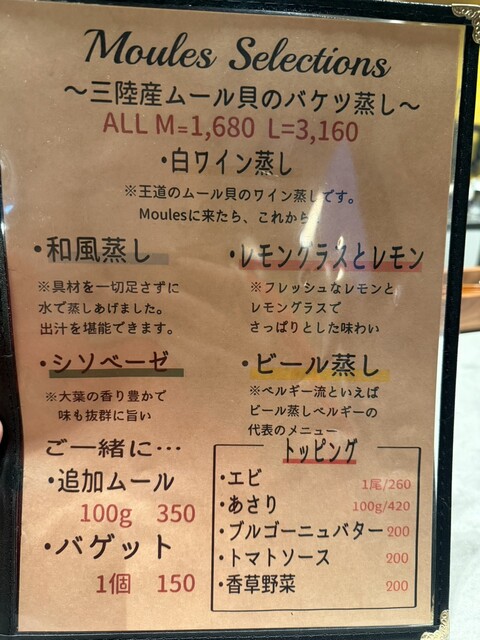 Moules Selections
～三陸産ムール貝のバケツ蒸し～
ALL M=1,680 L=3,160
・白ワイン蒸し
※王道のムール貝のワイン蒸しです。
Moulesに来たら、これから
・和風蒸し
※具材を一切足さずに
水で蒸しあげました。
出汁を堪能できます。
・レモングラスとレモン
※フレッシュなレモンと
レモングラスで
さっぱりとした味わい
・シソベーゼ
※大葉の香り豊かで
味も抜群に旨い
・ビール蒸し
※ベルギー流といえば
ビール蒸しベルギーの
代表のメニュー
ご一緒に…
・追加ムール
100g 350
・バゲット
1個 150
トッピング
・エビ 1尾/260
・あさり 100g/420
・ブルゴーニュバター 200
・トマトソース 200
・香草野菜 200